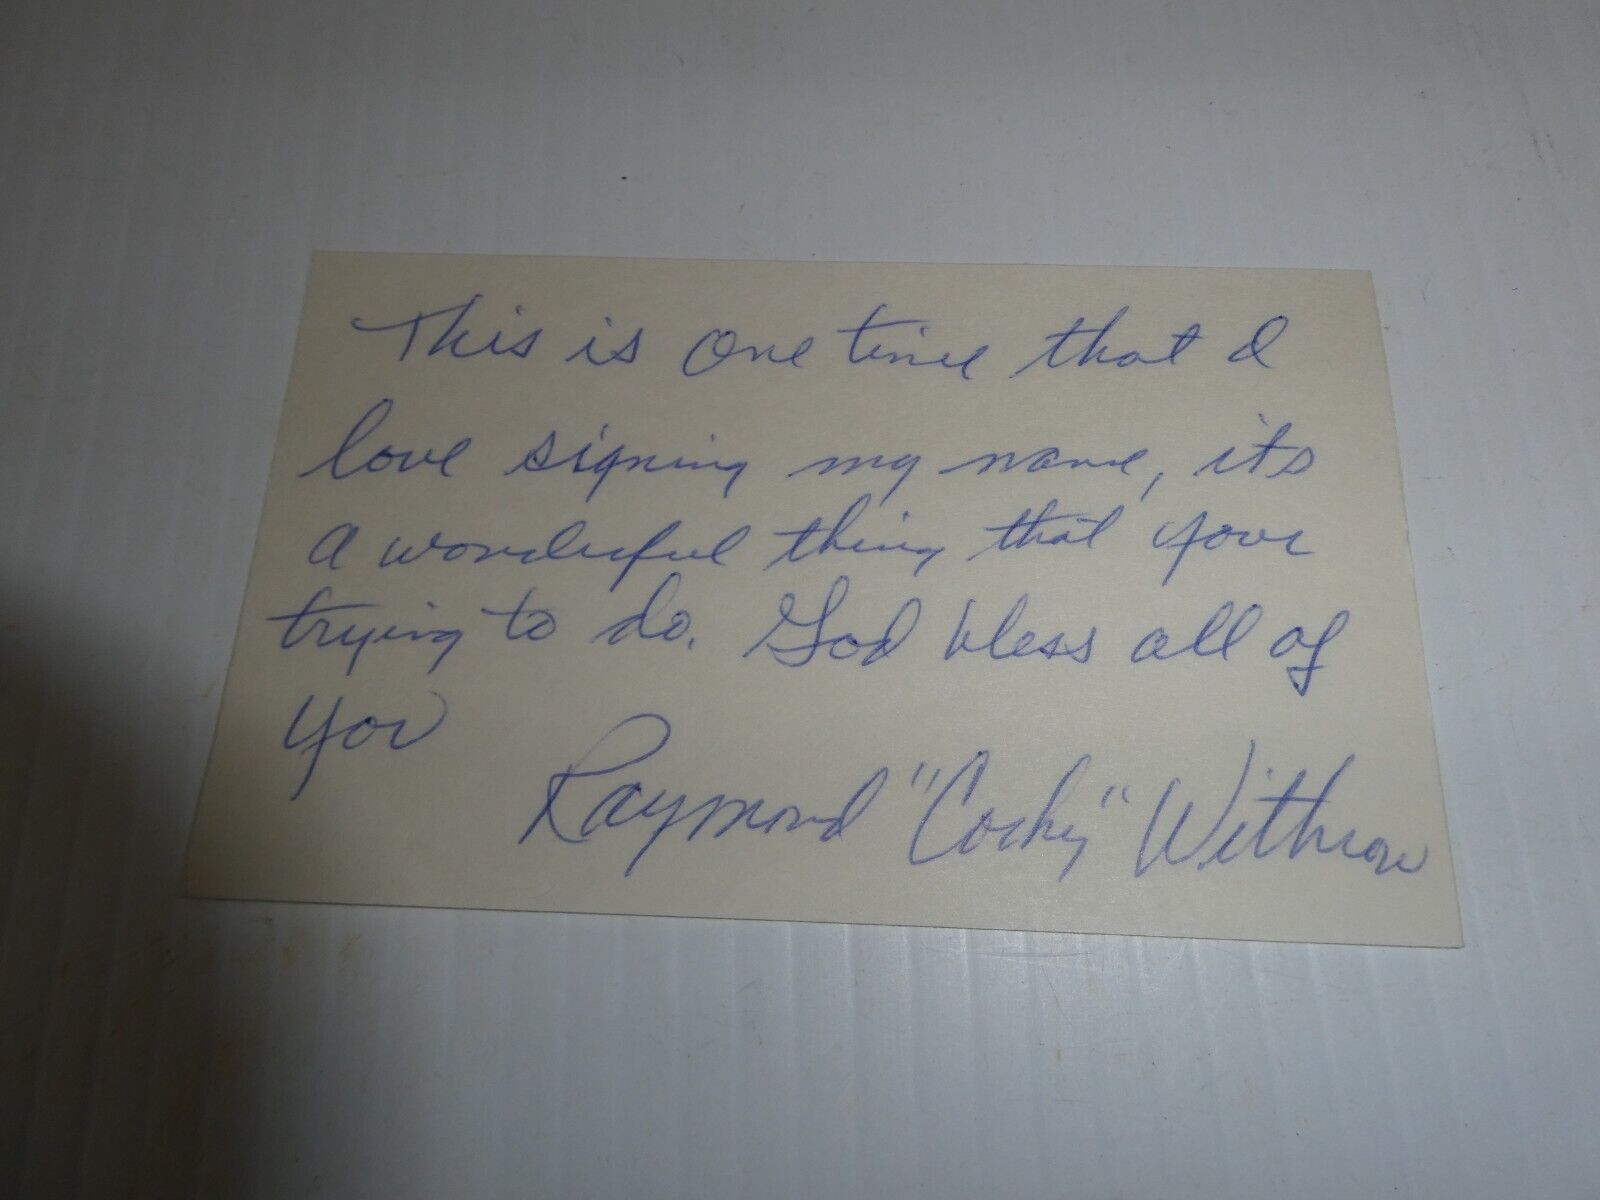 This is one time that I
love signing my name, its
a wonderful thing that your
trying to do. God bless all of
you
Raymond "Corky" Withrow